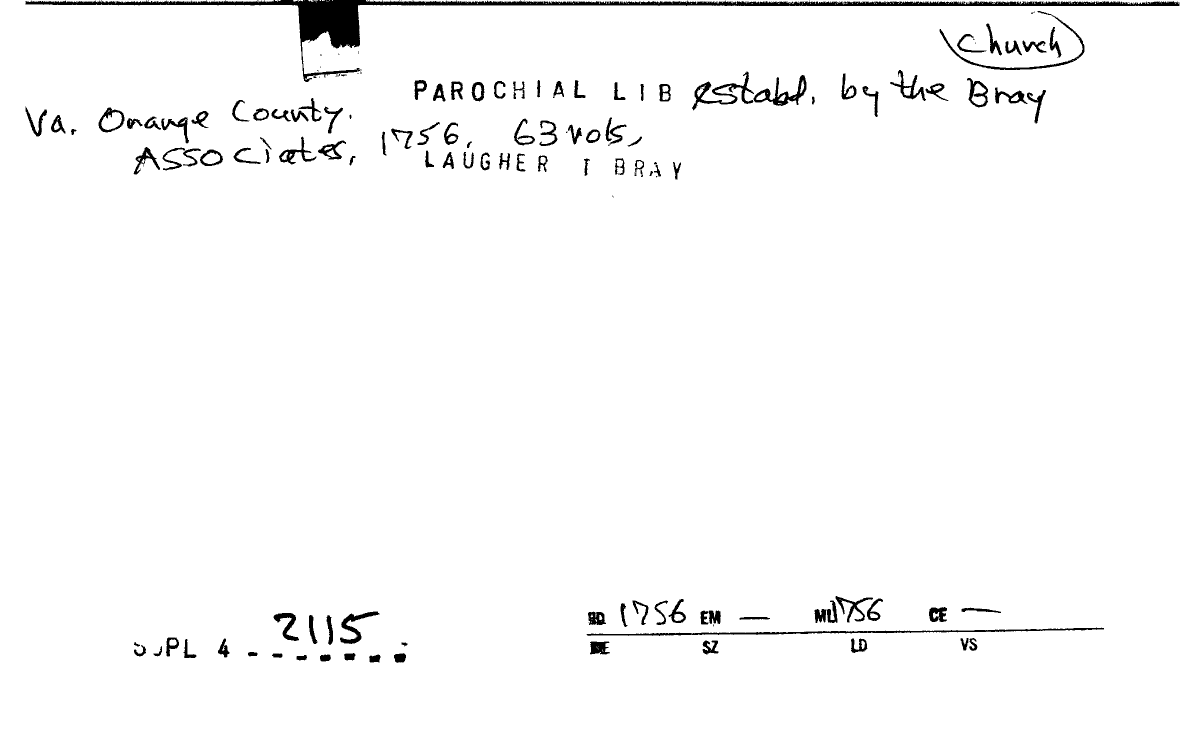 Church
Va. Orange County. PAROCHIAL LIB estabd. by the Bray
Associates, 1756, 63 vols,
LAUGHER T BRAY
SUPL 4 2115
BD 1756 EM — MU 1756 CE —
SZ LD VS